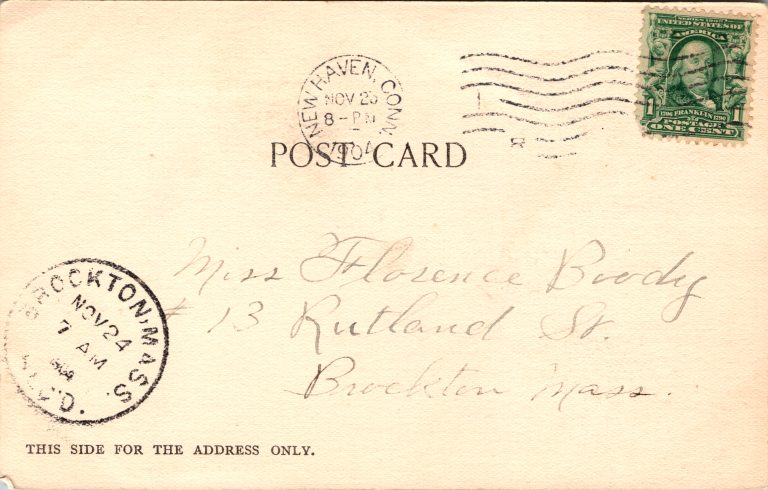 NEW HAVEN, CONN
NOV 23
8 - PM
1904
SERIES 1902
AMERICA
1 FRANKLIN 1
POSTAGE
ONE CENT
POST CARD
Miss Florence Brody
# 13 Rutland St.
Brockton Mass.
BROCKTON, MASS.
NOV 24
7 AM
1904
REC'D.
THIS SIDE FOR THE ADDRESS ONLY.